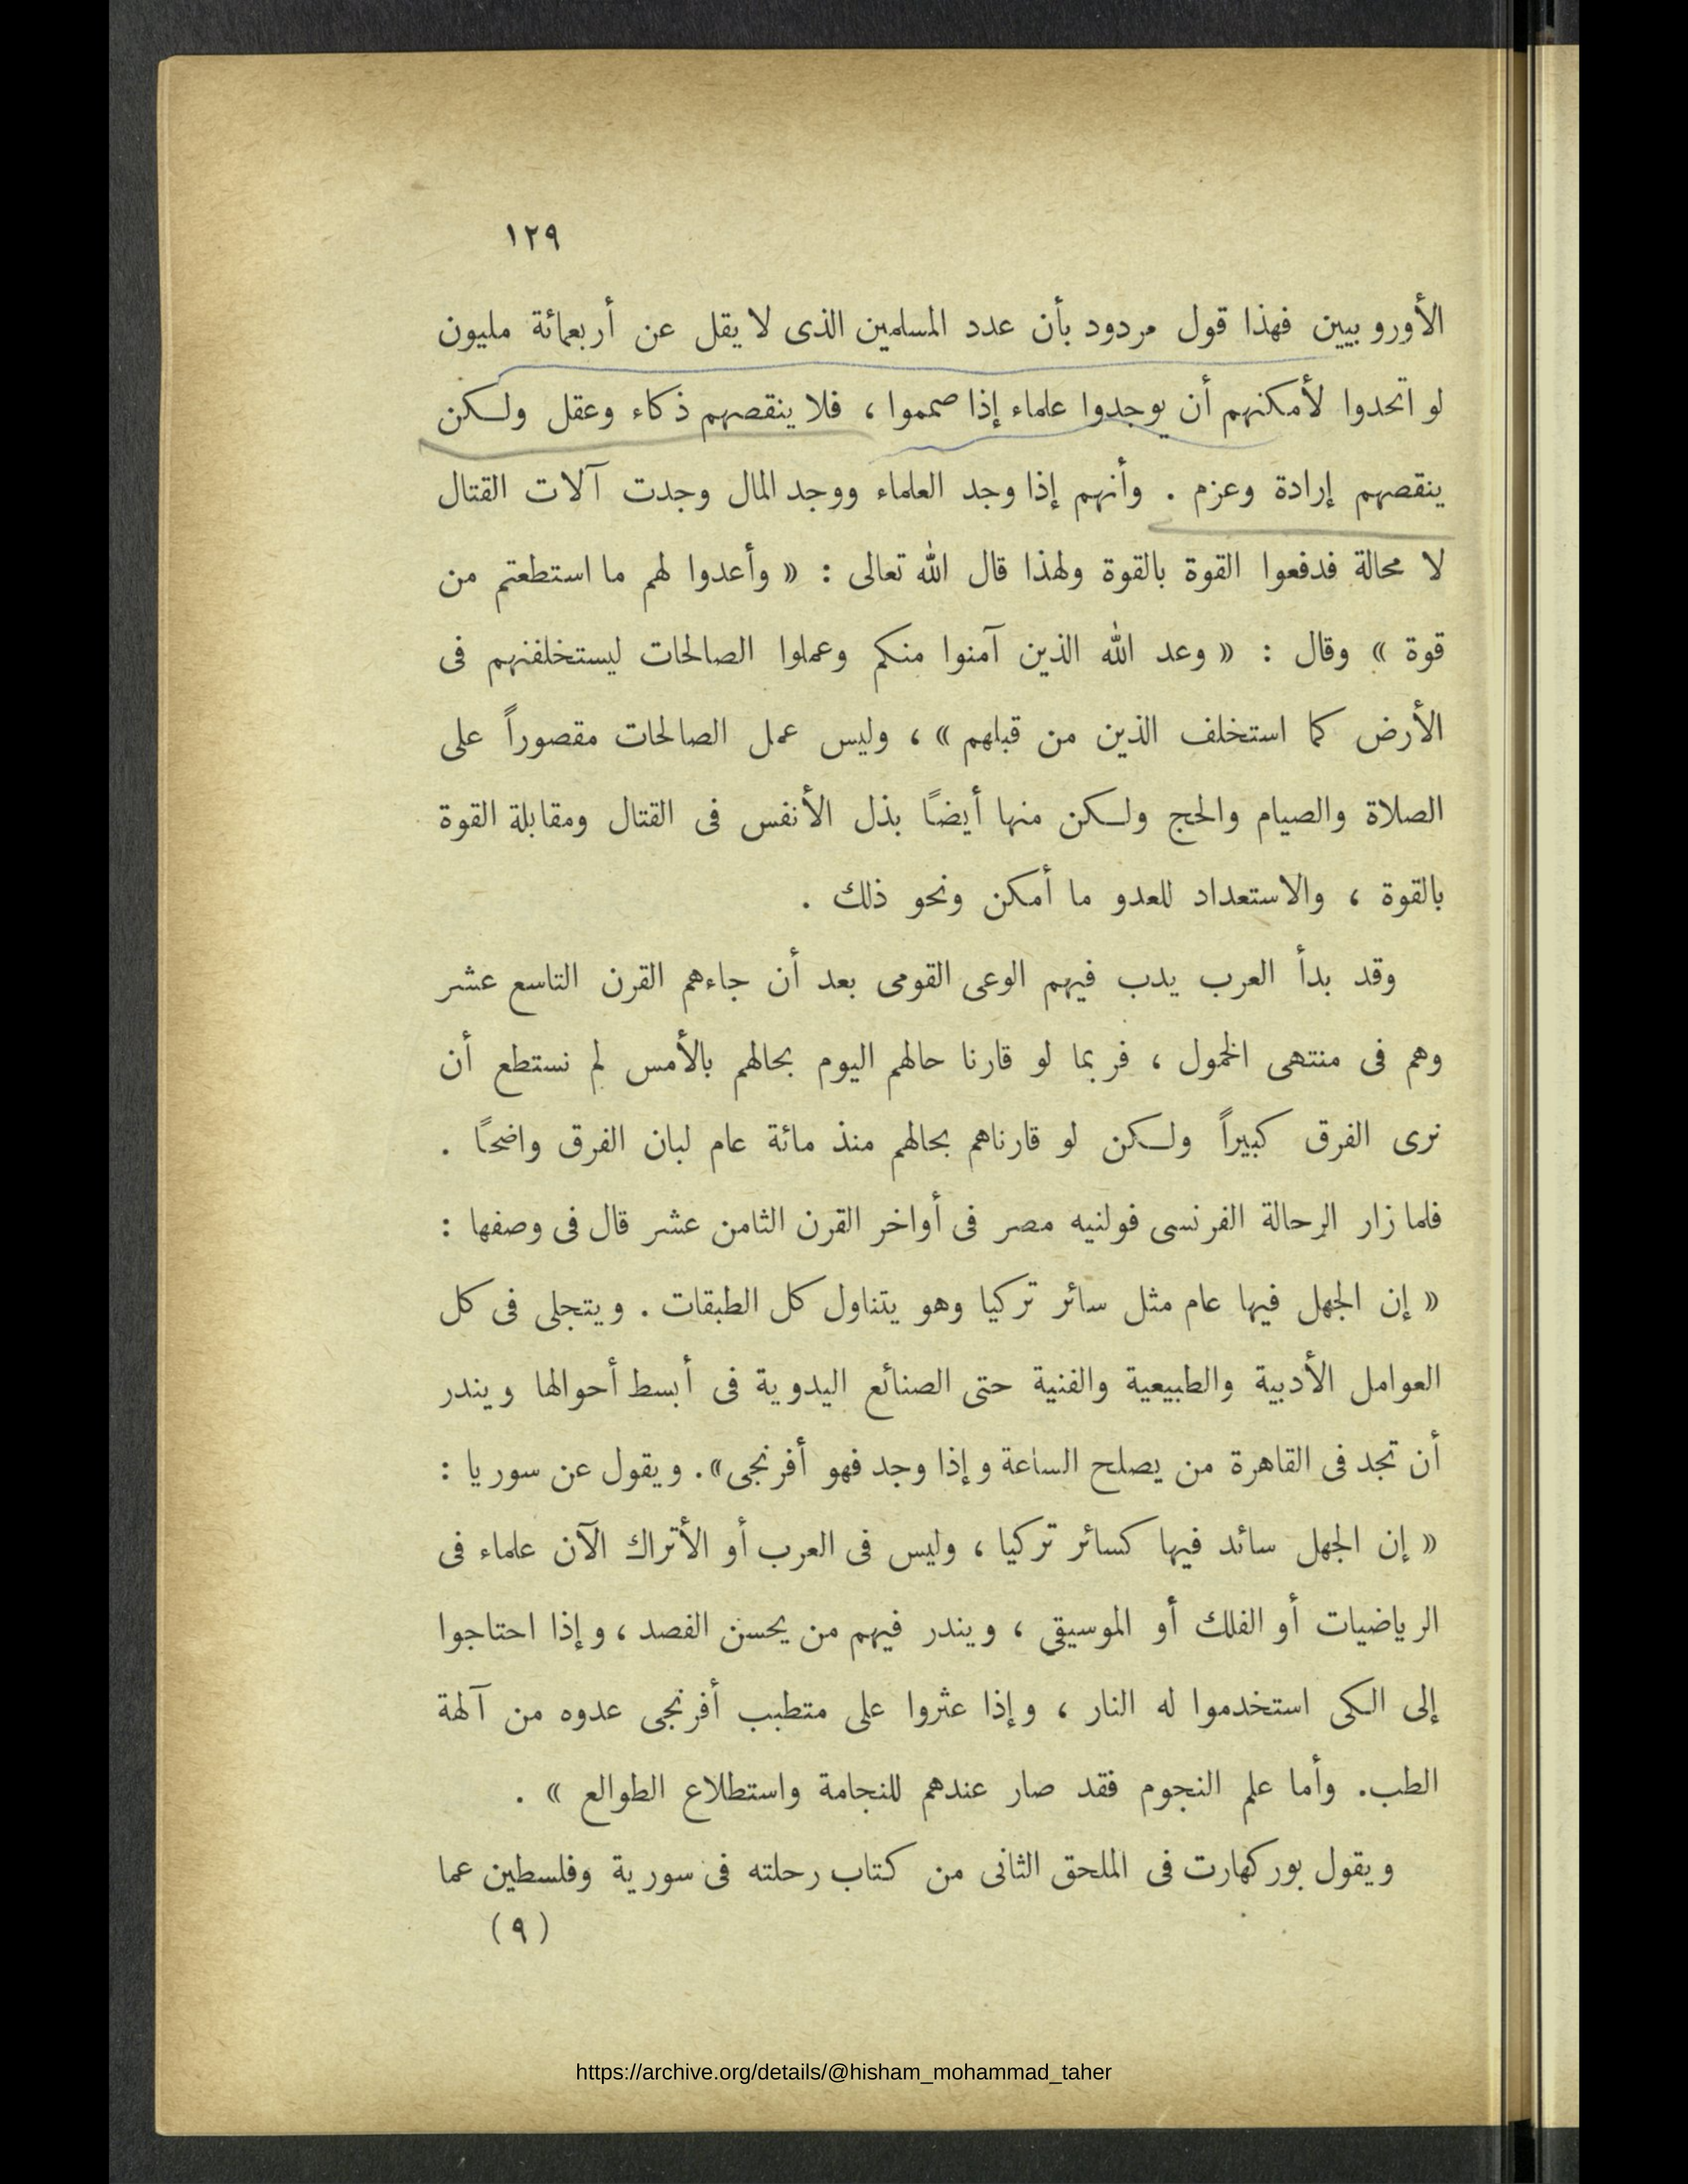 ١٢٩
الأوروبيين فهذا قول مردود بأن عدد المسلمين الذى لا يقل عن أربعمائة مليون
لو اتحدوا لأمكنهم أن يوجدوا علماء إذا صمموا ، فلا ينقصهم ذكاء وعقل ولكن
ينقصهم إرادة وعزم . وأنهم إذا وجد العلماء ووجد المال وجدت آلات القتال
لا محالة فدفعوا القوة بالقوة ولهذا قال الله تعالى : « وأعدوا لهم ما استطعتم من
قوة » وقال : « وعد الله الذين آمنوا منكم وعملوا الصالحات ليستخلفنهم فى
الأرض كما استخلف الذين من قبلهم » ، وليس عمل الصالحات مقصوراً على
الصلاة والصيام والحج ولكن منها أيضًا بذل الأنفس فى القتال ومقابلة القوة
بالقوة ، والاستعداد للعدو ما أمكن ونحو ذلك .
وقد بدأ العرب يدب فيهم الوعى القومى بعد أن جاءهم القرن التاسع عشر
وهم فى منتهى الخمول ، فربما لو قارنا حالهم اليوم بحالهم بالأمس لم نستطع أن
نرى الفرق كبيراً ولكن لو قارناهم بحالهم منذ مائة عام لبان الفرق واضحًا .
فلما زار الرحالة الفرنسى فولنيه مصر فى أواخر القرن الثامن عشر قال فى وصفها :
« إن الجهل فيها عام مثل سائر تركيا وهو يتناول كل الطبقات . ويتجلى فى كل
العوامل الأدبية والطبيعية والفنية حتى الصنائع اليدوية فى أبسط أحوالها ويندر
أن تجد فى القاهرة من يصلح الساعة وإذا وجد فهو أفرنجى» . ويقول عن سوريا :
« إن الجهل سائد فيها كسائر تركيا ، وليس فى العرب أو الأتراك الآن علماء فى
الرياضيات أو الفلك أو الموسيقى ، ويندر فيهم من يحسن الفصد ، وإذا احتاجوا
إلى الكى استخدموا له النار ، وإذا عثروا على متطبب أفرنجى عدوه من آلهة
الطب. وأما علم النجوم فقد صار عندهم للنجامة واستطلاع الطوالع » .
ويقول بوركهارت فى الملحق الثانى من كتاب رحلته فى سورية وفلسطين عما
(٩)
https://archive.org/details/@hisham_mohammad_taher